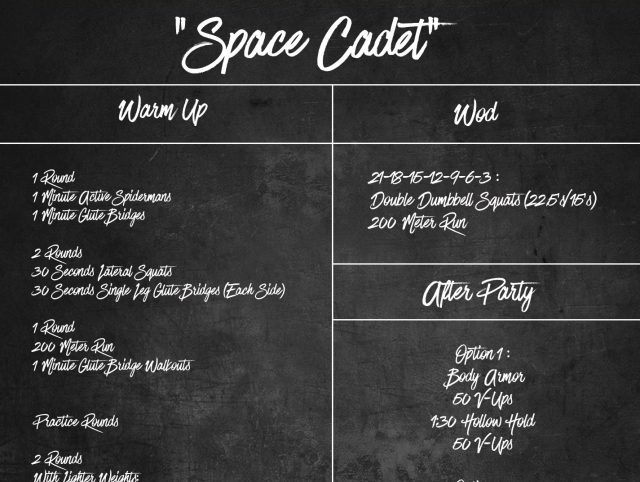 "Space Cadet"
Warm Up
1 Round
1 Minute Active Spidermans
1 Minute Glute Bridges
2 Rounds
30 Seconds Lateral Squats
30 Seconds Single Leg Glute Bridges (Each Side)
1 Round
200 Meter Run
1 Minute Glute Bridge Walkouts
Practice Rounds
2 Rounds
With Lighter Weights:
Wod
21-18-15-12-9-6-3 :
Double Dumbbell Squats (22.5's/15's)
200 Meter Run
After Party
Option 1 :
Body Armor
50 V-Ups
1:30 Hollow Hold
50 V-Ups